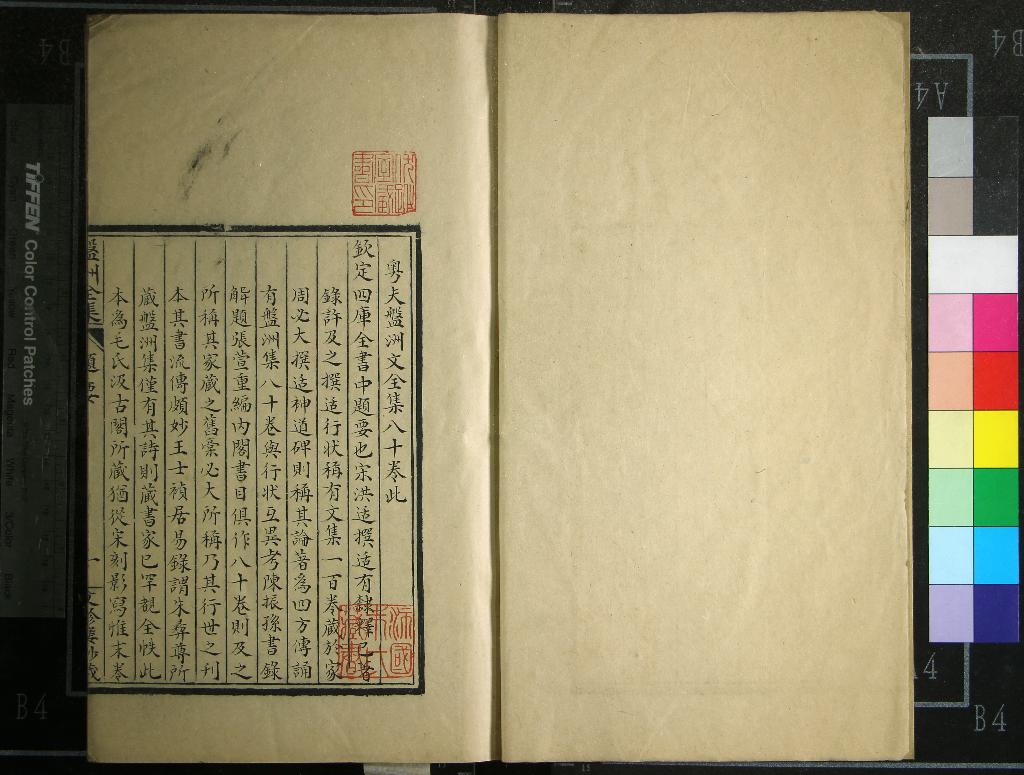 粵夫盤洲文全集八十卷此
欽定四庫全書中題要也宋洪适撰适有隸釋已著
錄許及之撰适行狀稱有文集一百卷藏於家
周必大撰适神道碑則稱其論著為四方傳誦
有盤洲集八十卷與行狀互異考陳振孫書錄
解題張萱重編內閣書目俱作八十卷則及之
所稱其家藏之舊稾必大所稱乃其行世之刋
本其書流傳頗妙王士禎居易錄謂朱彝尊所
藏盤洲集僅有其詩則藏書家已罕覩全帙此
本為毛氏汲古閣所藏猶從宋刻影寫惟末卷
盤洲全集 題要 一
TIFFEN Color Control Patches
B4
B4
A4
A4
B4
B4